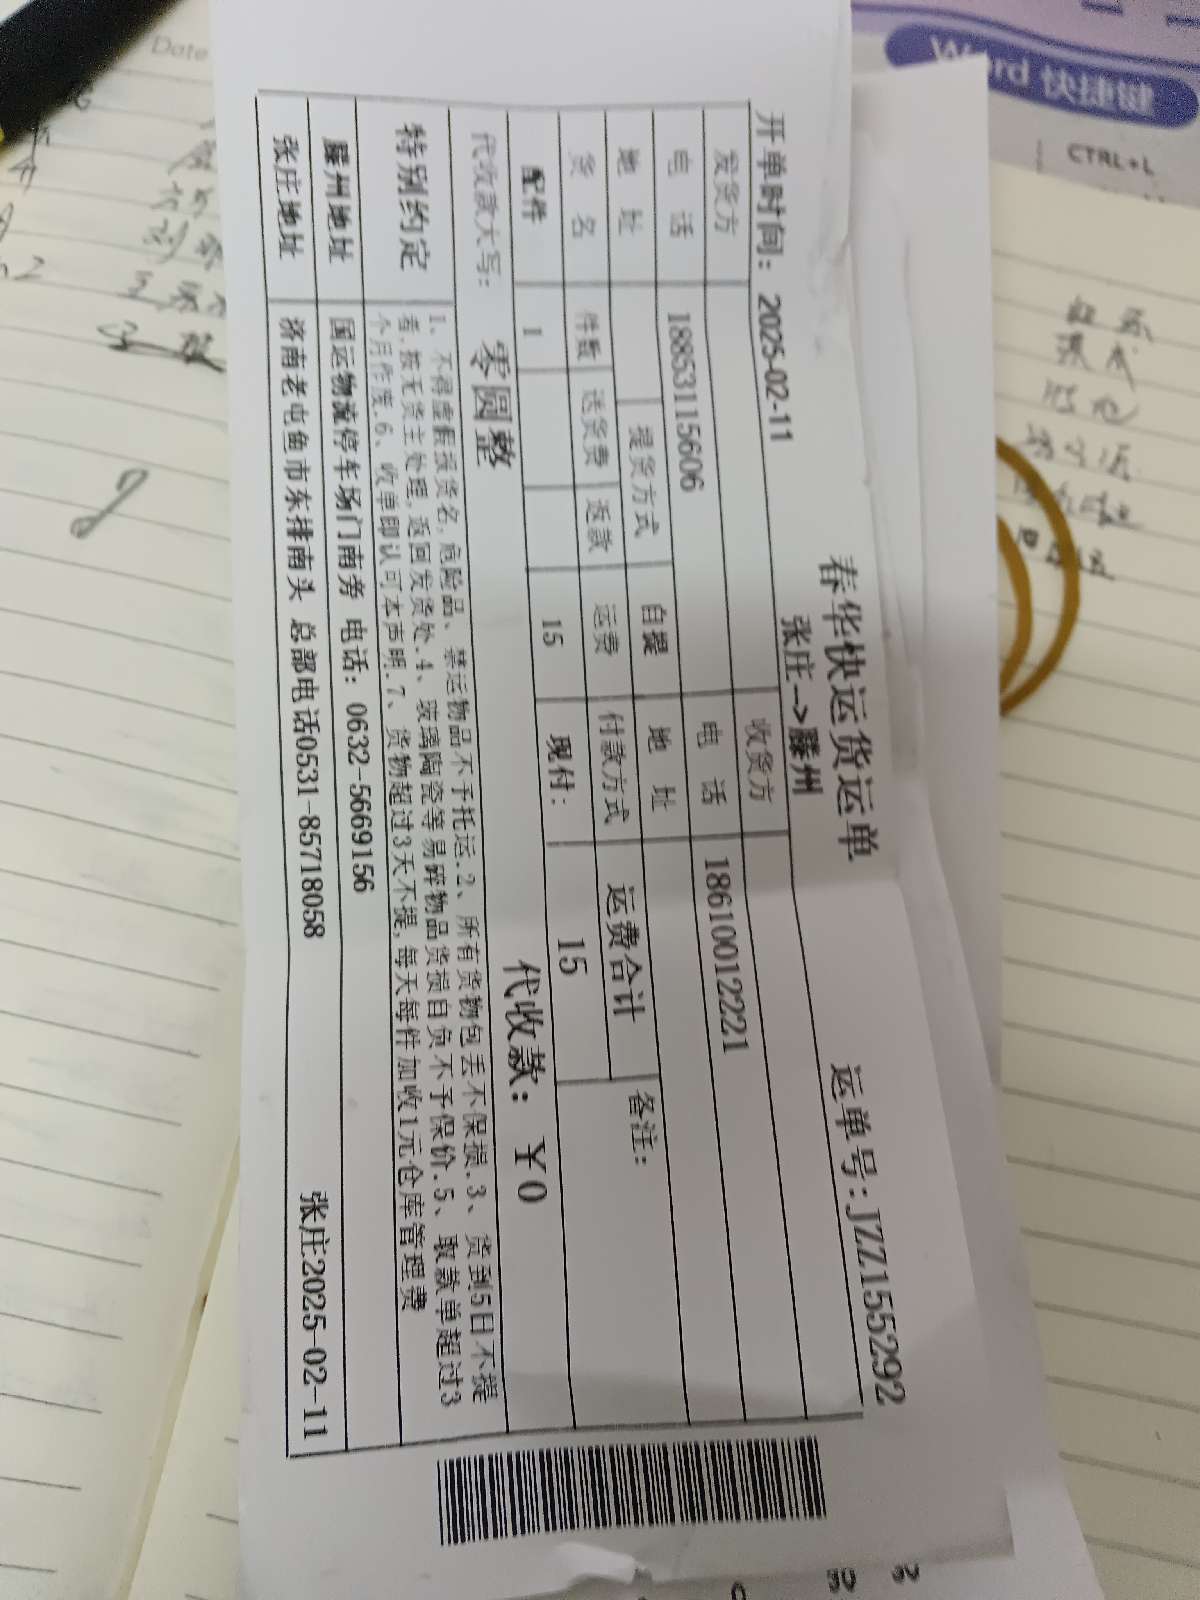 春华快运货运单
运单号:JZZ155292
开单时间: 2025-02-11 张庄-->滕州
发货方 收货方
电 话 18853115606 电 话 18610012221
地 址 提货方式 自提 地 址
货 名 件数 送货费 返款 运费 付款方式 运费合计 备注:
配件 1 15 现付: 15
代收款大写: 零圆整 代收款: ¥0
特别约定 1、不得虚假报货名,危险品、禁运物品不予托运.2、所有货物包丢不保损.3、货到5日不提
者,按无货主处理,返回发货处.4、玻璃陶瓷等易碎物品货损自负不予保价.5、取款单超过3
个月作废.6、收单即认可本声明.7、货物超过3天不提,每天每件加收1元仓库管理费
滕州地址 国运物流停车场门南旁 电话: 0632-5669156
张庄地址 济南老屯鱼市东排南头 总部电话0531-85718058 张庄2025-02-11
Date
Word 快捷键
CTRL+L